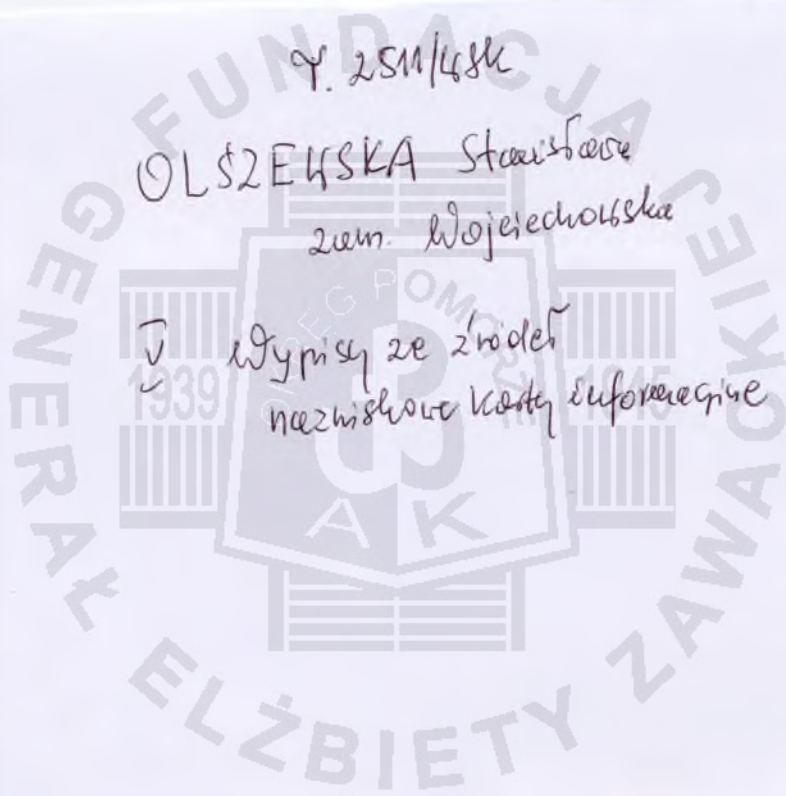 T. 2511/WSK
OLSZEWSKA Stanisława
zam. Wojciechowska
V Wypisy ze źródeł
nazwiskowe karty informacyjne
FUNDACJA
GENERAŁ ELŻBIETY ZAWACKIEJ
OKRĘG POMORZE
1939 1945
AK